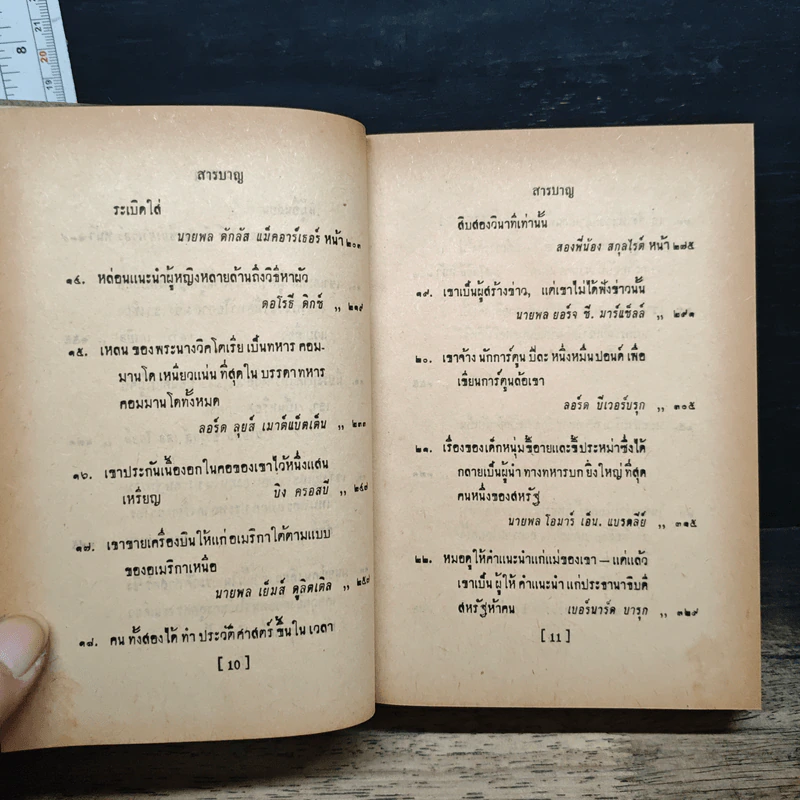 8
21
20
19
สารบาญ
ระเบิดใส่
นายพล ดักลัส แม็คอาร์เธอร์ หน้า ๒๐๑
๑๔. หล่อนแนะนำผู้หญิงหลายล้านถึงวิธีหาผัว
ดอโรธี ดิกซ์ ,, ๒๑๙
๑๕. เหลน ของพระนางวิคโตเรีย เป็นทหาร คอม-
มานโด เหนียวแน่น ที่สุดใน บรรดาทหาร
คอมมานโดทั้งหมด
ลอร์ด ลุยส์ เมาต์แบ็ตเต็น ,, ๒๓๓
๑๖. เขาประกันเนื้องอกในคอของเขาไว้หนึ่งแสน
เหรียญ บิง ครอสบี ,, ๒๔๙
๑๗. เขาขายเครื่องบินให้แก่อเมริกาใต้ตามแบบ
ของอเมริกาเหนือ
นายพล เย็มส์ ดูลิตเติล ,, ๒๕๗
๑๘. คน ทั้งสองได้ ทำ ประวัติศาสตร์ ขึ้นใน เวลา
[ 10 ]
สารบาญ
สิบสองวินาทีเท่านั้น
สองพี่น้อง สกุลไรต์ หน้า ๒๗๕
๑๙. เขาเป็นผู้สร้างข่าว, แต่เขาไม่ได้ฟังข่าวนั้น
นายพล ยอร์จ ซี. มาร์แช็ลล์ ,, ๒๙๑
๒๐. เขาจ้าง นักการ์ตูน ปีละ หนึ่งหมื่นปอนด์ เพื่อ
เขียนการ์ตูนล้อเขา
ลอร์ด บีเวอร์บรุก ,, ๓๐๕
๒๑. เรื่องของเด็กหนุ่มขี้อายและขี้ประหม่าซึ่งได้
กลายเป็นผู้นำ ทางทหารบก ยิ่งใหญ่ ที่สุด
คนหนึ่งของสหรัฐ
นายพล โอมาร์ เอ็น. แบรดลีย์ ,, ๓๑๕
๒๒. หมอดูให้คำแนะนำแก่แม่ของเขา — แต่แล้ว
เขาเป็น ผู้ ให้ คำแนะนำ แก่ประธานาธิบดี
สหรัฐห้าคน เบอร์นาร์ด บารุก ,, ๓๒๙
[ 11 ]